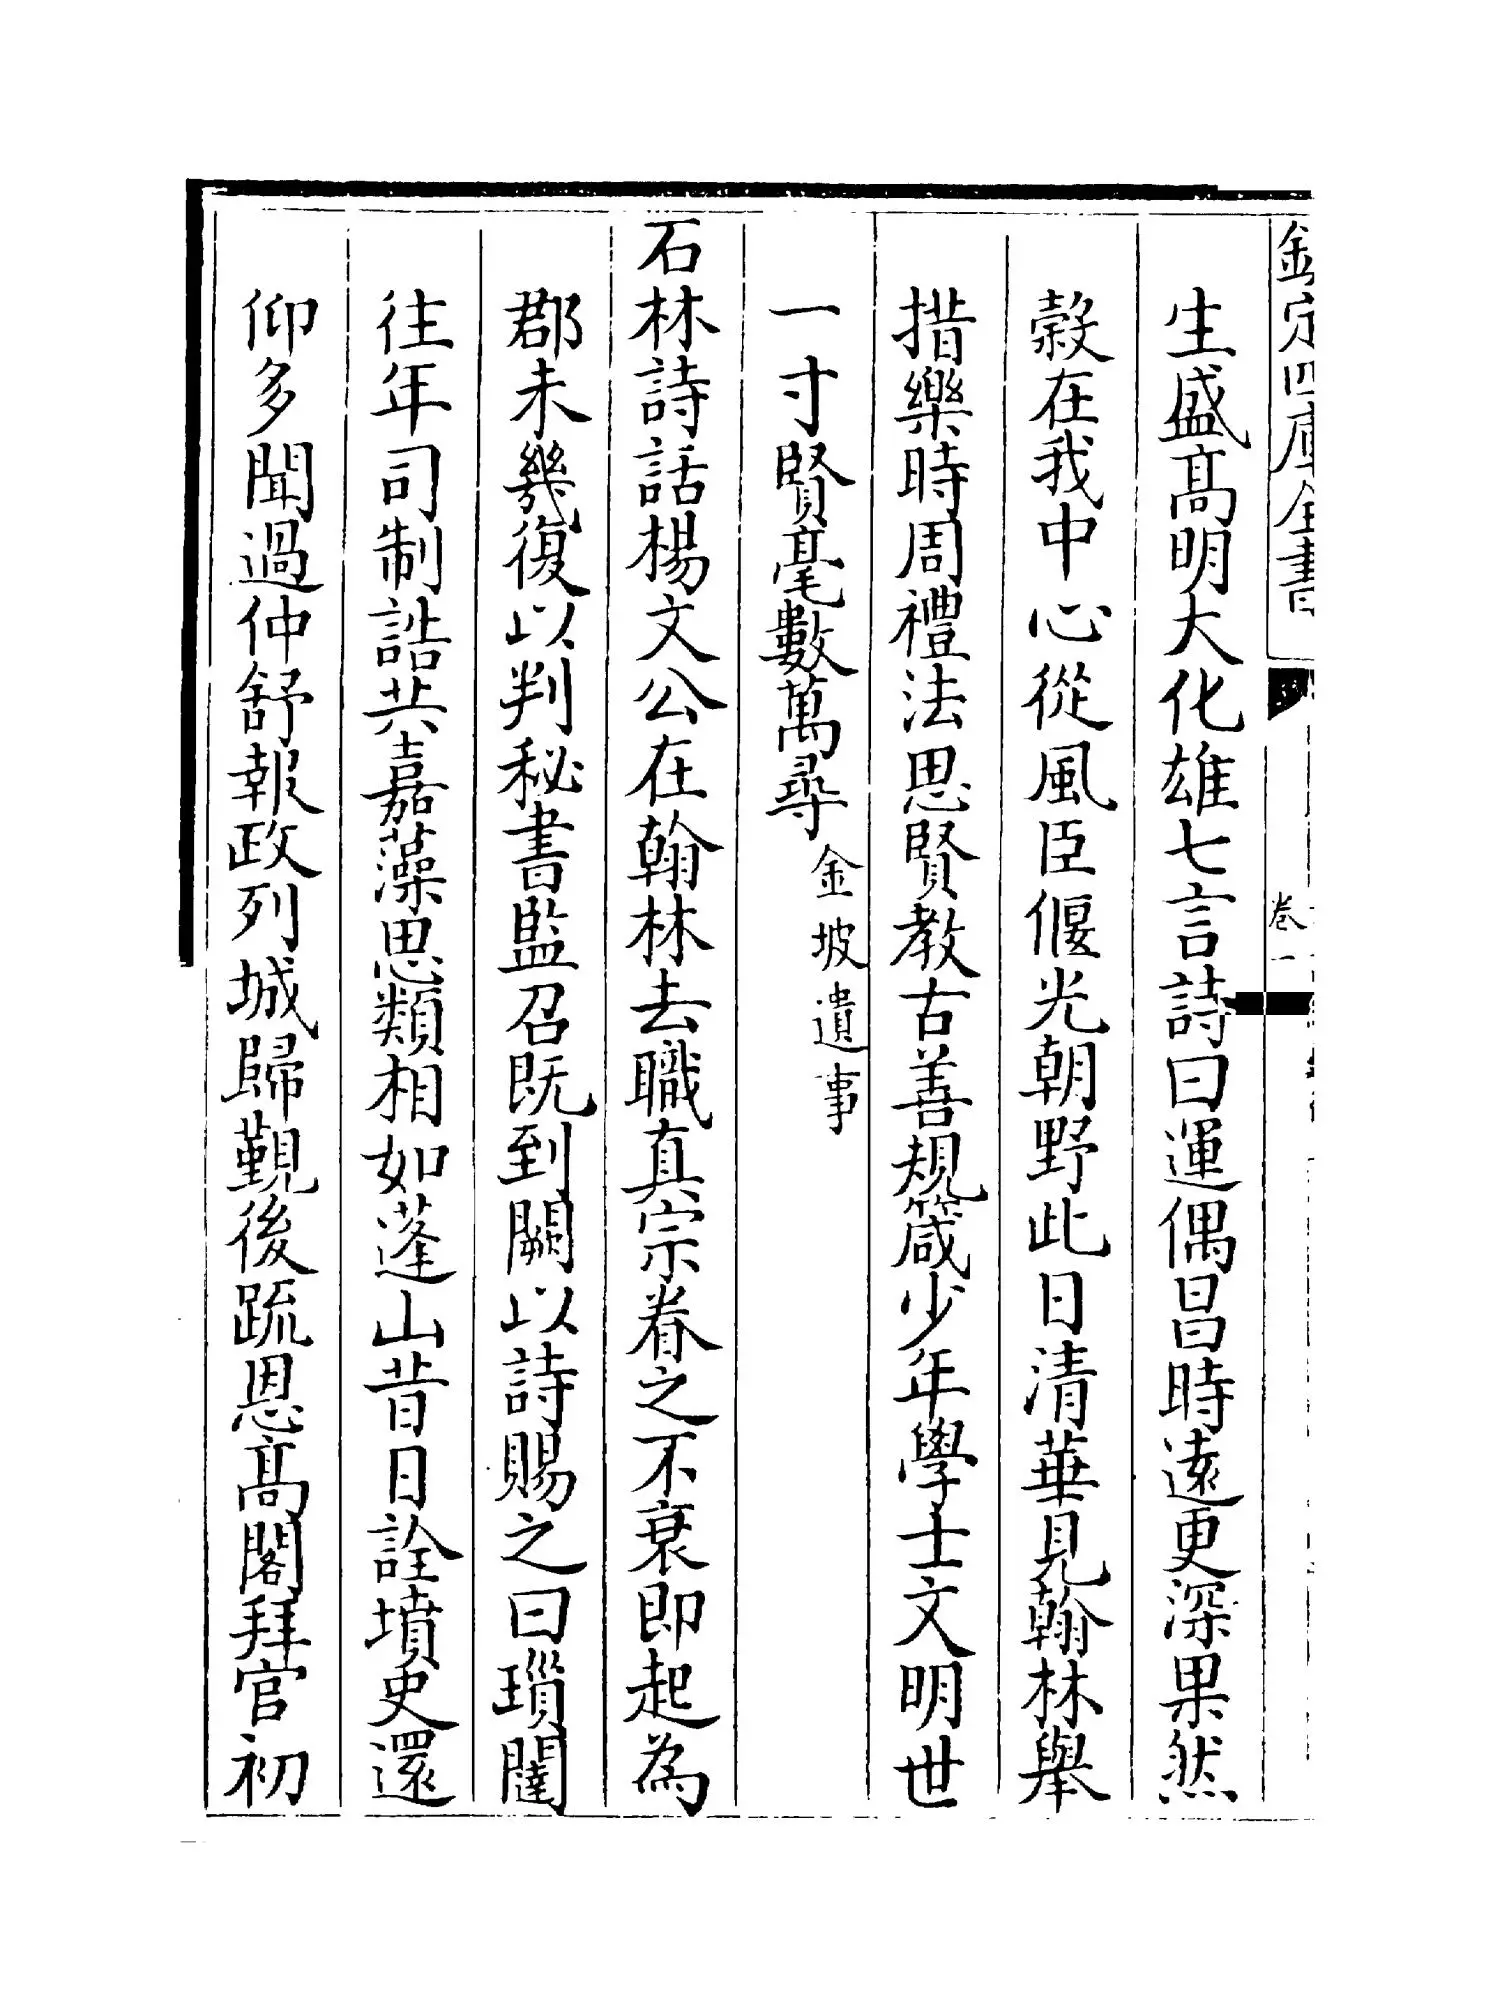 欽定四庫全書
卷一
生盛髙明大化雄七言詩曰運偶昌時逺更深果然
縠在我中心從風臣偃光朝野此日清華見翰林舉
措樂時周禮法思賢教古善規箴少年學士文明世
一寸賢毫數萬尋金坡遺事
石林詩話楊文公在翰林去職真宗眷之不衰即起為
郡未幾復以判秘書監召既到闕以詩賜之曰瑣闥
往年司制誥共嘉藻思類相如蓬山昔日詮墳史還
仰多聞過仲舒報政列城歸覲後疏恩髙閣拜官初